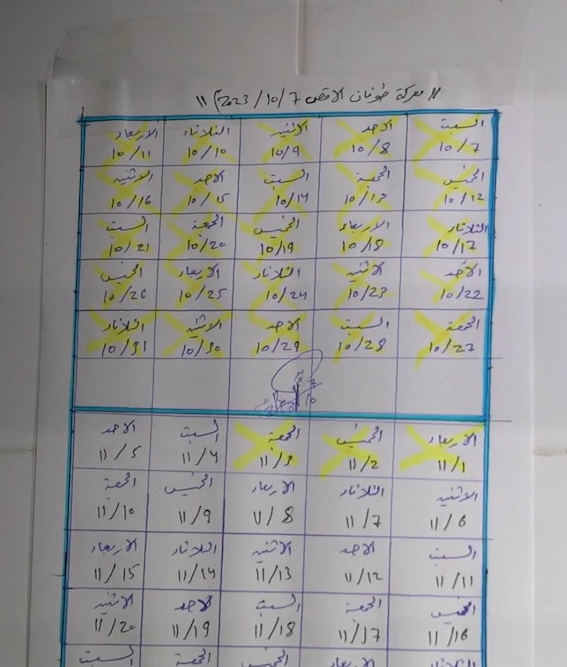 // معركة طوفان الاقصى 2023/10/7 //
السبت الاحد الاثنين الثلاثاء الاربعاء
10/7 10/8 10/9 10/10 10/11
الخميس الجمعة السبت الاحد الاثنين
10/12 10/13 10/14 10/15 10/16
الثلاثاء الاربعاء الخميس الجمعة السبت
10/17 10/18 10/19 10/20 10/21
الأحد الاثنين الثلاثاء الاربعاء الخميس
10/22 10/23 10/24 10/25 10/26
الجمعة السبت الاحد الاثنين الثلاثاء
10/27 10/28 10/29 10/30 10/31
الاربعاء الخميس الجمعة السبت الاحد
11/1 11/2 11/3 11/4 11/5
الاثنين الثلاثاء الاربعاء الخميس الجمعة
11/6 11/7 11/8 11/9 11/10
السبت الاحد الاثنين الثلاثاء الاربعاء
11/11 11/12 11/13 11/14 11/15
الخميس الجمعة السبت الاحد الاثنين
11/16 11/17 11/18 11/19 11/20
الثلاثاء الاربعاء الخميس الجمعة السبت